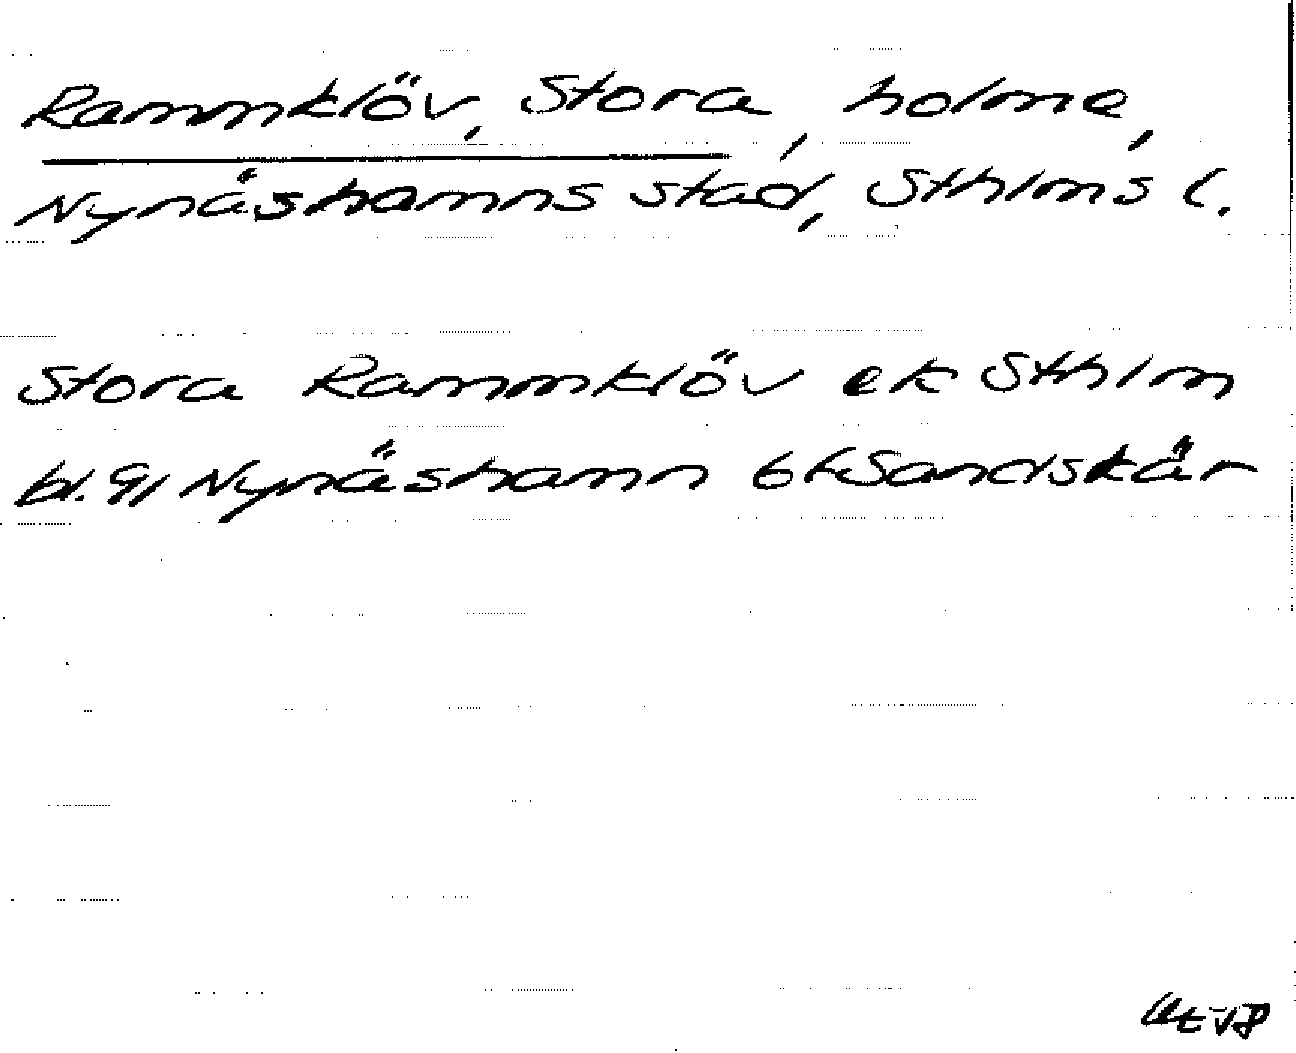 Rammklöv, Stora, holme,
Nynäshamns stad, Sthlms l.
Stora Rammklöv ek Sthlm
bl. 91 Nynäshamn 6f Sandskär